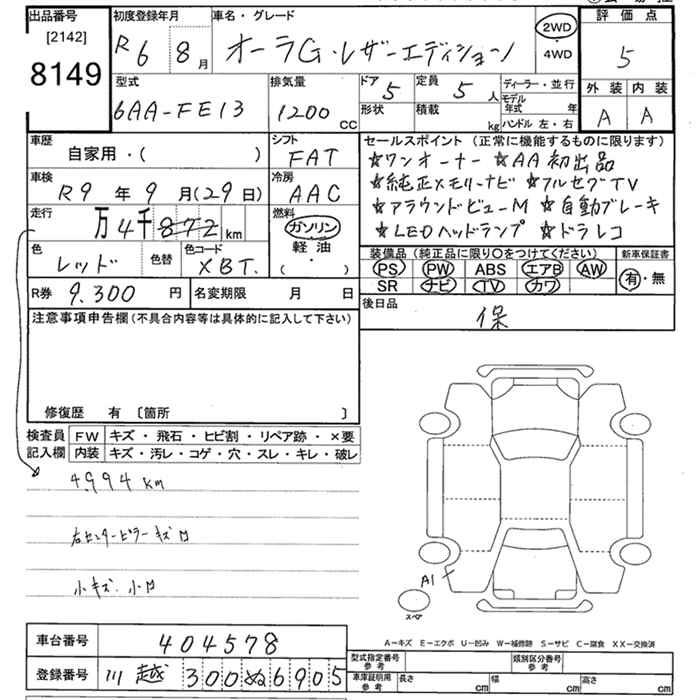 出品番号
[2142]
8149
初度登録年月
R6 8月
車名・グレード
オーラG・レザーエディション
2WD
・
4WD
評価点
5
型式
6AA-FE13
排気量
1200 CC
ドア 5
形状
定員 5 人
積載 kg
ディーラー・並行
モデル年式 年
ハンドル 左・右
外装 内装
A A
車歴
自家用・( )
シフト
FAT
車検
R9年9月(29日)
冷房
AAC
走行
万4千872 km
燃料
ガソリン
軽油
・( )
色
レッド
色替
色コード
XBT.
R券 9,300 円
名変期限 月 日
セールスポイント (正常に機能するものに限ります)
☆ワンオーナー ☆AA初出品
☆純正メモリーナビ ☆フルセグTV
☆アラウンドビューM ☆自動ブレーキ
☆LEDヘッドランプ ☆ドラレコ
装備品 (純正品に限り○をつけてください)
PS PW ABS エアB AW
SR ナビ TV カワ
新車保証書
有・無
後日品
保
注意事項申告欄 (不具合内容等は具体的に記入して下さい)
修復歴 有 [箇所 ]
検査員記入欄
FW キズ・飛石・ヒビ割・リペア跡・×要
内装 キズ・汚レ・コゲ・穴・スレ・キレ・破レ
4,994 km
右センターピラーキズ 口
小キズ. 小口
A1
スペア
A-キズ E-エクボ U-凹み W-補修跡 S-サビ C-腐食 XX-交換済
車台番号 404578
登録番号 川越 300 ぬ 6905
型式指定番号 参考
類別区分番号 参考
車庫証明用 参考
長さ cm 幅 cm 高さ cm